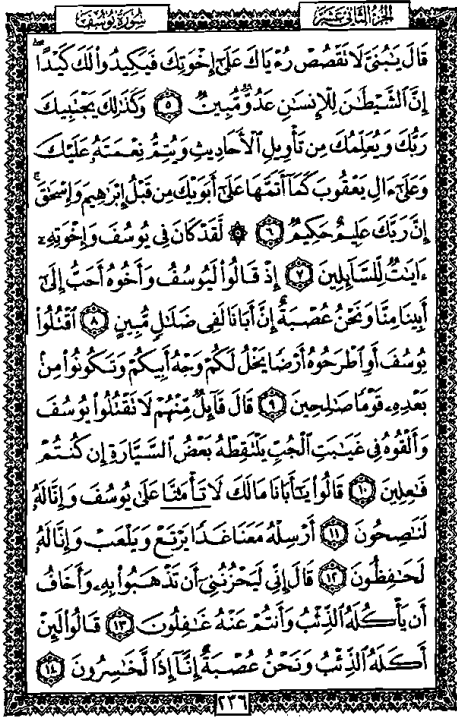 الجزء الثاني عشر
سورة يوسف
قَالَ يَٰبُنَىَّ لَا تَقْصُصْ رُءْيَاكَ عَلَىٰٓ إِخْوَتِكَ فَيَكِيدُوا۟ لَكَ كَيْدًا ۖ
إِنَّ ٱلشَّيْطَٰنَ لِلْإِنسَٰنِ عَدُوٌّ مُّبِينٌ ٥ وَكَذَٰلِكَ يَجْتَبِيكَ
رَبُّكَ وَيُعَلِّمُكَ مِن تَأْوِيلِ ٱلْأَحَادِيثِ وَيُتِمُّ نِعْمَتَهُۥ عَلَيْكَ
وَعَلَىٰٓ ءَالِ يَعْقُوبَ كَمَآ أَتَمَّهَا عَلَىٰٓ أَبَوَيْكَ مِن قَبْلُ إِبْرَٰهِيمَ وَإِسْحَٰقَ ۚ
إِنَّ رَبَّكَ عَلِيمٌ حَكِيمٌ ٦ ۞ لَّقَدْ كَانَ فِى يُوسُفَ وَإِخْوَتِهِۦٓ
ءَايَٰتٌ لِّلسَّآئِلِينَ ٧ إِذْ قَالُوا۟ لَيُوسُفُ وَأَخُوهُ أَحَبُّ إِلَىٰٓ
أَبِينَا مِنَّا وَنَحْنُ عُصْبَةٌ إِنَّ أَبَانَا لَفِى ضَلَٰلٍ مُّبِينٍ ٨ ٱقْتُلُوا۟
يُوسُفَ أَوِ ٱطْرَحُوهُ أَرْضًا يَخْلُ لَكُمْ وَجْهُ أَبِيكُمْ وَتَكُونُوا۟ مِنۢ
بَعْدِهِۦ قَوْمًا صَٰلِحِينَ ٩ قَالَ قَآئِلٌ مِّنْهُمْ لَا تَقْتُلُوا۟ يُوسُفَ
وَأَلْقُوهُ فِى غَيَٰبَتِ ٱلْجُبِّ يَلْتَقِطْهُ بَعْضُ ٱلسَّيَّارَةِ إِن كُنتُمْ
فَٰعِلِينَ ١٠ قَالُوا۟ يَٰٓأَبَانَا مَا لَكَ لَا تَأْمَ۫نَّا عَلَىٰ يُوسُفَ وَإِنَّا لَهُۥ
لَنَٰصِحُونَ ١١ أَرْسِلْهُ مَعَنَا غَدًا يَرْتَعْ وَيَلْعَبْ وَإِنَّا لَهُۥ
لَحَٰفِظُونَ ١٢ قَالَ إِنِّى لَيَحْزُنُنِىٓ أَن تَذْهَبُوا۟ بِهِۦ وَأَخَافُ
أَن يَأْكُلَهُ ٱلذِّئْبُ وَأَنتُمْ عَنْهُ غَٰفِلُونَ ١٣ قَالُوا۟ لَئِنْ
أَكَلَهُ ٱلذِّئْبُ وَنَحْنُ عُصْبَةٌ إِنَّآ إِذًا لَّخَٰسِرُونَ ١٤
٢٣٦